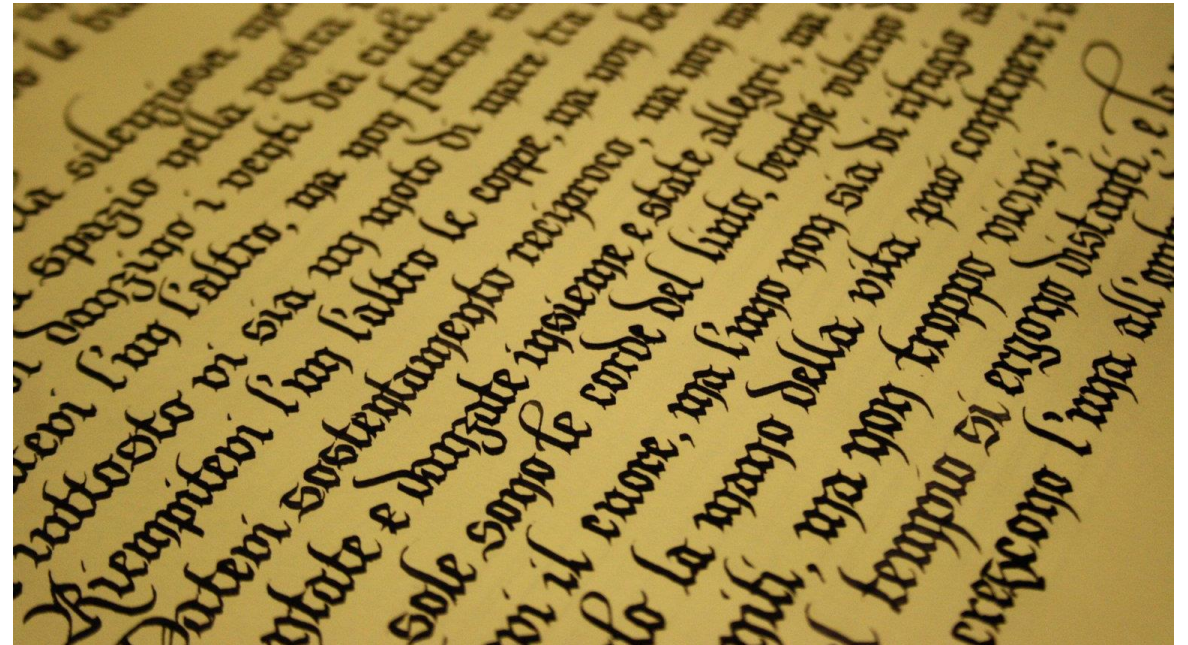 le
silenziosa
spazio nella vostra
danzino i venti dei cieli.
atevi l'un l'altro, ma non fatene
iuttosto vi sia un moto di mare tra
Riempitevi l'un l'altro le coppe, ma non be
Datevi sostentamento reciproco, ma non
ntate e danzate insieme e state allegri, ma
sole sono le corde del liuto, benché vibrino
vi il cuore, ma l'uno non sia di rifugio
lo la mano della vita può contenere i
niti, ma non troppo vicini;
l tempio si ergono distanti, e la
crescono l'una all'omb